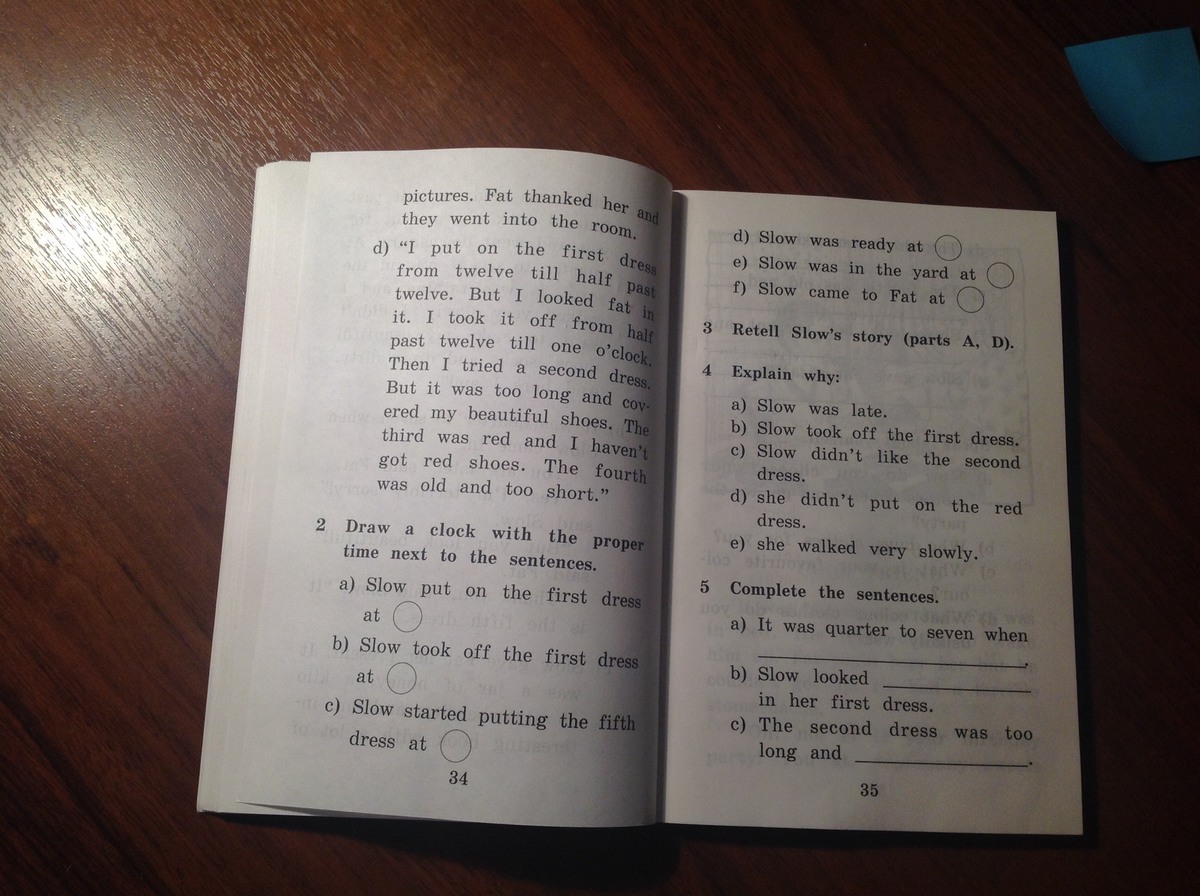 pictures. Fat thanked her and
they went into the room.
d) “I put on the first dress
from twelve till half past
twelve. But I looked fat in
it. I took it off from half
past twelve till one o’clock.
Then I tried a second dress.
But it was too long and cov-
ered my beautiful shoes. The
third was red and I haven’t
got red shoes. The fourth
was old and too short.”
2 Draw a clock with the proper
time next to the sentences.
a) Slow put on the first dress
at
b) Slow took off the first dress
at
c) Slow started putting the fifth
dress at
34
d) Slow was ready at
e) Slow was in the yard at
f) Slow came to Fat at
3 Retell Slow’s story (parts A, D).
4 Explain why:
a) Slow was late.
b) Slow took off the first dress.
c) Slow didn’t like the second
dress.
d) she didn’t put on the red
dress.
e) she walked very slowly.
5 Complete the sentences.
a) It was quarter to seven when
.
b) Slow looked
in her first dress.
c) The second dress was too
long and .
35